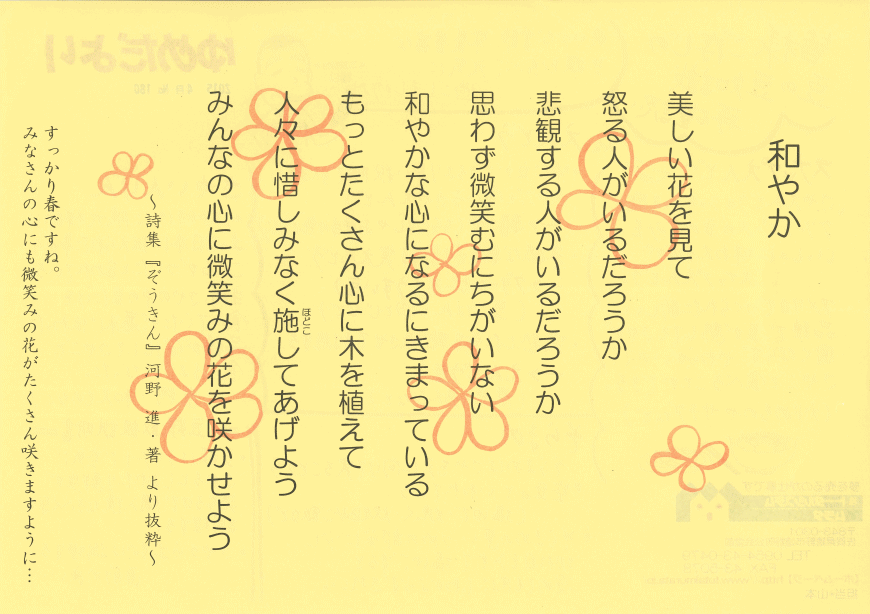 和やか
美しい花を見て
怒る人がいるだろうか
悲観する人がいるだろうか
思わず微笑むにちがいない
和やかな心になるにきまっている
もっとたくさん心に木を植えて
人々に惜しみなく施してあげよう
ほどこ
みんなの心に微笑みの花を咲かせよう
～詩集『ぞうきん』河野 進・著 より抜粋～
すっかり春ですね。
みなさんの心にも微笑みの花がたくさん咲きますように…
ゆめだより
2015 4月 No 180